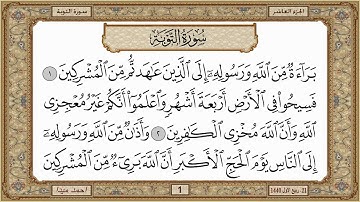 الجزء العاشر
سورة التوبة
سُورَةُ التَّوْبَةِ
بَرَآءَةٌ مِّنَ ٱللَّهِ وَرَسُولِهِۦٓ إِلَى ٱلَّذِينَ عَٰهَدتُّم مِّنَ ٱلْمُشْرِكِينَ ١
فَسِيحُوا۟ فِى ٱلْأَرْضِ أَرْبَعَةَ أَشْهُرٍ وَٱعْلَمُوٓا۟ أَنَّكُمْ غَيْرُ مُعْجِزِى
ٱللَّهِ وَأَنَّ ٱللَّهَ مُخْزِى ٱلْكَٰفِرِينَ ٢ وَأَذَٰنٌ مِّنَ ٱللَّهِ وَرَسُولِهِۦٓ
إِلَى ٱلنَّاسِ يَوْمَ ٱلْحَجِّ ٱلْأَكْبَرِ أَنَّ ٱللَّهَ بَرِىٓءٌ مِّنَ ٱلْمُشْرِكِينَ
21- ربيع الأول 1440
1
أحمد